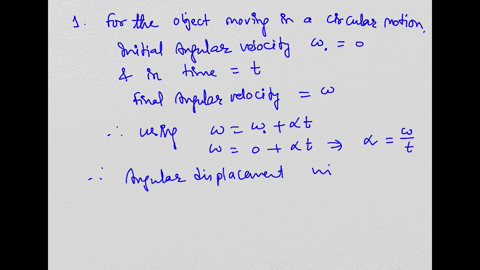 1. For the object moving in a circular motion,
Initial Angular velocity ω₀ = 0
& in time = t
Final Angular velocity = ω
∴ using ω = ω₀ + αt
ω = 0 + αt ⇒ α = ω/t
∴ Angular displacement in